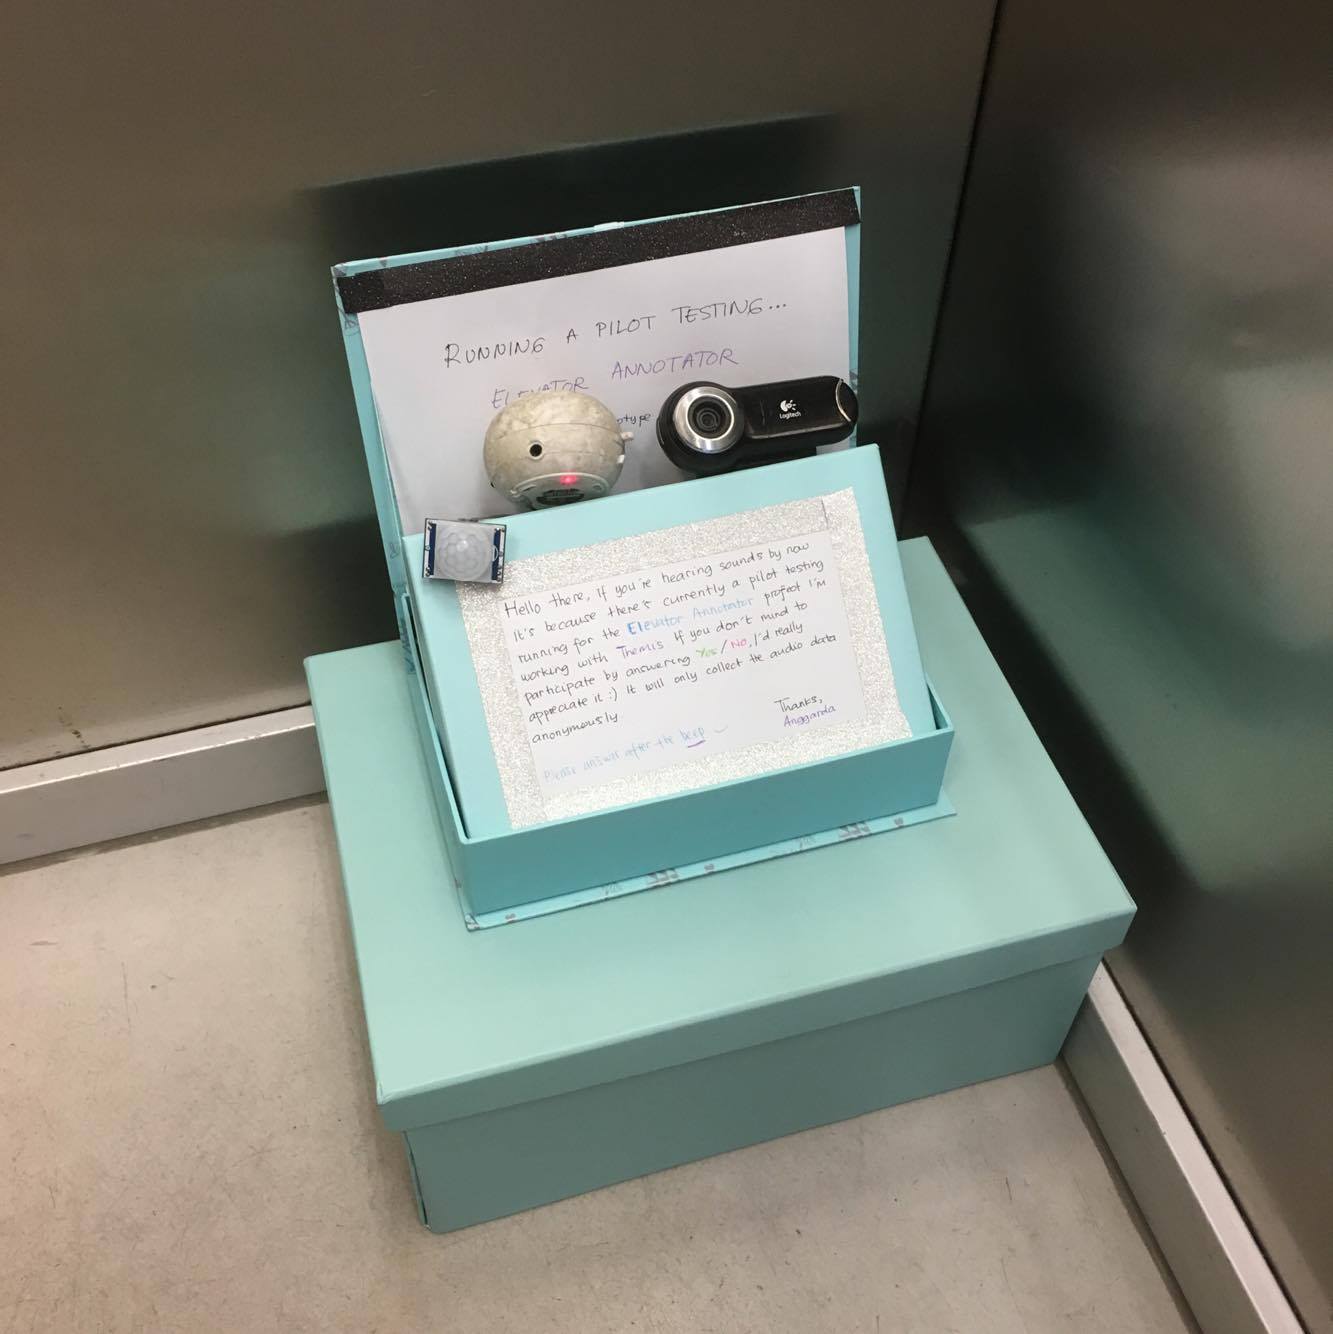 RUNNING A PILOT TESTING...
ELEVATOR ANNOTATOR
Logitech
Hello there, if you're hearing sounds by now
it's because there's currently a pilot testing
running for the Elevator Annotator project I'm
working with Themis. If you don't mind to
participate by answering Yes/No, I'd really
appreciate it :) It will only collect the audio data
anonymously.
Thanks,
Anggarda
Please answer after the beep